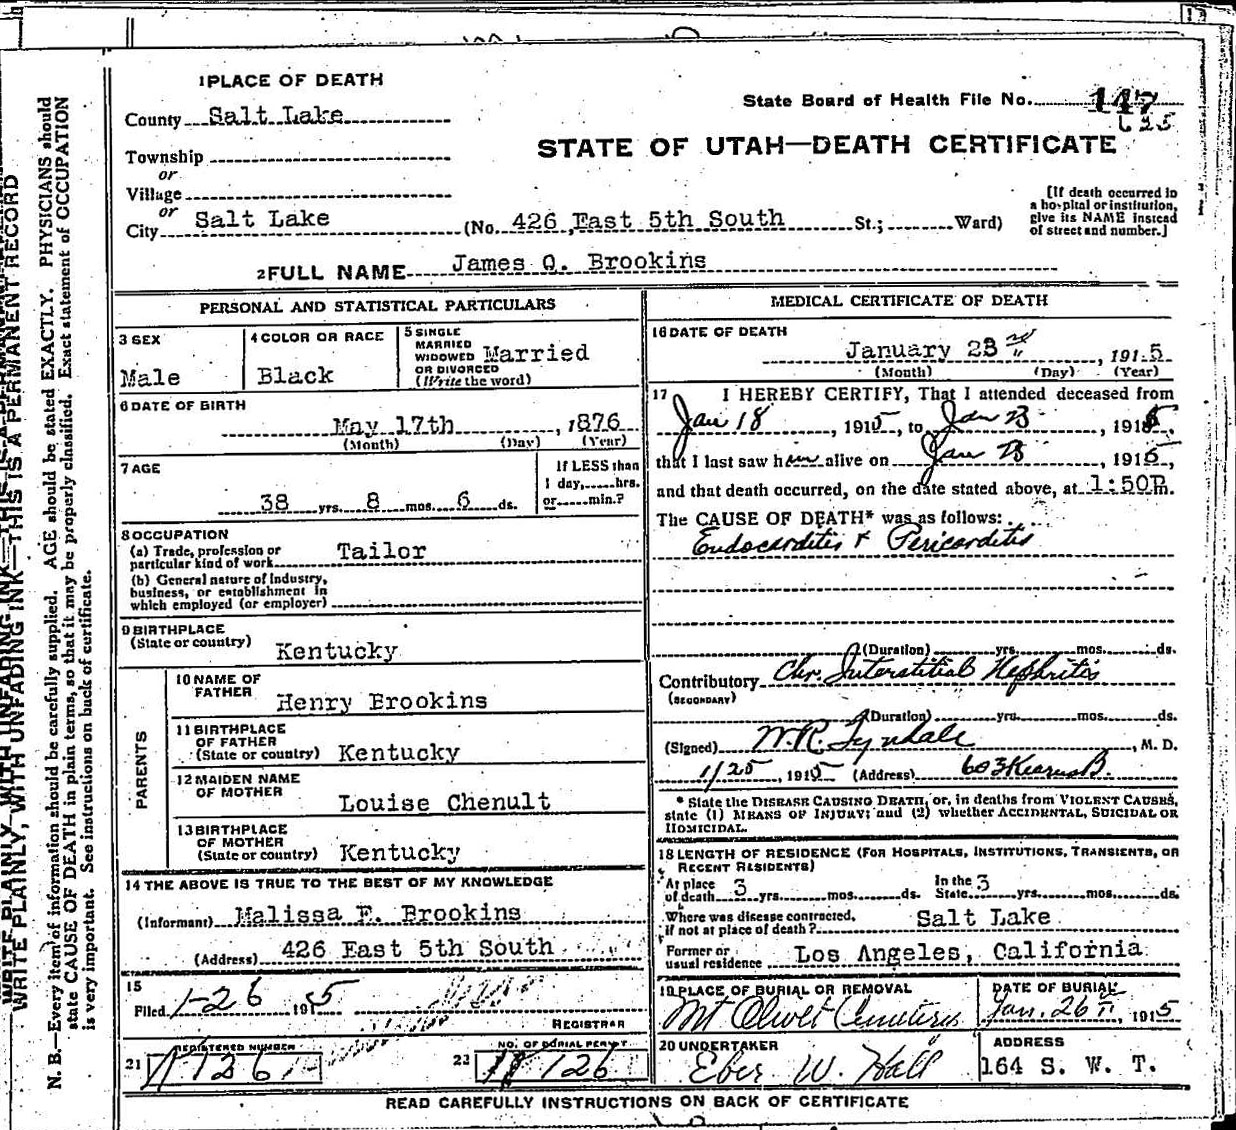 1 PLACE OF DEATH
County Salt Lake
Township
or
Village
or
City Salt Lake (No. 426, East 5th South St.; Ward)
State Board of Health File No. 147
625
STATE OF UTAH—DEATH CERTIFICATE
[If death occurred in
a hospital or institution,
give its NAME instead
of street and number.]
2 FULL NAME James Q. Brookins
PERSONAL AND STATISTICAL PARTICULARS
3 SEX
Male
4 COLOR OR RACE
Black
5 SINGLE
MARRIED
WIDOWED
OR DIVORCED
(Write the word)
Married
6 DATE OF BIRTH
May 17th, 1876
(Month) (Day) (Year)
7 AGE
38 yrs. 8 mos. 6 ds.
If LESS than
1 day, hrs.
or min.?
8 OCCUPATION
(a) Trade, profession or
particular kind of work Tailor
(b) General nature of Industry,
business, or establishment in
which employed (or employer)
9 BIRTHPLACE
(State or country)
Kentucky
PARENTS
10 NAME OF
FATHER
Henry Brookins
11 BIRTHPLACE
OF FATHER
(State or country) Kentucky
12 MAIDEN NAME
OF MOTHER
Louise Chenult
13 BIRTHPLACE
OF MOTHER
(State or country) Kentucky
14 THE ABOVE IS TRUE TO THE BEST OF MY KNOWLEDGE
(Informant) Malissa F. Brookins
(Address) 426 East 5th South
15
Filed 1-26 1915
REGISTRAR
21 REGISTERED NUMBER
126
22 NO. OF BURIAL PERMIT
126
MEDICAL CERTIFICATE OF DEATH
16 DATE OF DEATH
January 23 rd, 1915
(Month) (Day) (Year)
17 I HEREBY CERTIFY, That I attended deceased from
Jan 18, 1915, to Jan 23, 1915,
that I last saw him alive on Jan 23, 1915,
and that death occurred, on the date stated above, at 1:50P.m.
The CAUSE OF DEATH* was as follows:
Endocarditis & Pericarditis
(Duration) yrs. mos. ds.
Contributory Chr. Interstitial Nephritis
(SECONDARY)
(Duration) yrs. mos. ds.
(Signed) W.R. Tyndale, M. D.
1/25, 1915 (Address) 603 Kearns B.
* State the DISEASE CAUSING DEATH, or, in deaths from VIOLENT CAUSES,
state (1) MEANS OF INJURY; and (2) whether ACCIDENTAL, SUICIDAL OR
HOMICIDAL.
18 LENGTH OF RESIDENCE (FOR HOSPITALS, INSTITUTIONS, TRANSIENTS, OR
RECENT RESIDENTS)
At place
of death 3 yrs. mos. ds.
In the
State 3 yrs. mos. ds.
Where was disease contracted,
if not at place of death? Salt Lake
Former or
usual residence Los Angeles, California
19 PLACE OF BURIAL OR REMOVAL
Mt Olivet Cemetery
DATE OF BURIAL
Jan. 26, 1915
20 UNDERTAKER
Eber W. Hall
ADDRESS
164 S. W. T.
READ CAREFULLY INSTRUCTIONS ON BACK OF CERTIFICATE
WRITE PLAINLY, WITH UNFADING INK—THIS IS A PERMANENT RECORD
N. B.—Every item of information should be carefully supplied. AGE should be stated EXACTLY. PHYSICIANS should
state CAUSE OF DEATH in plain terms, so that it may be properly classified. Exact statement of OCCUPATION
is very important. See instructions on back of certificate.